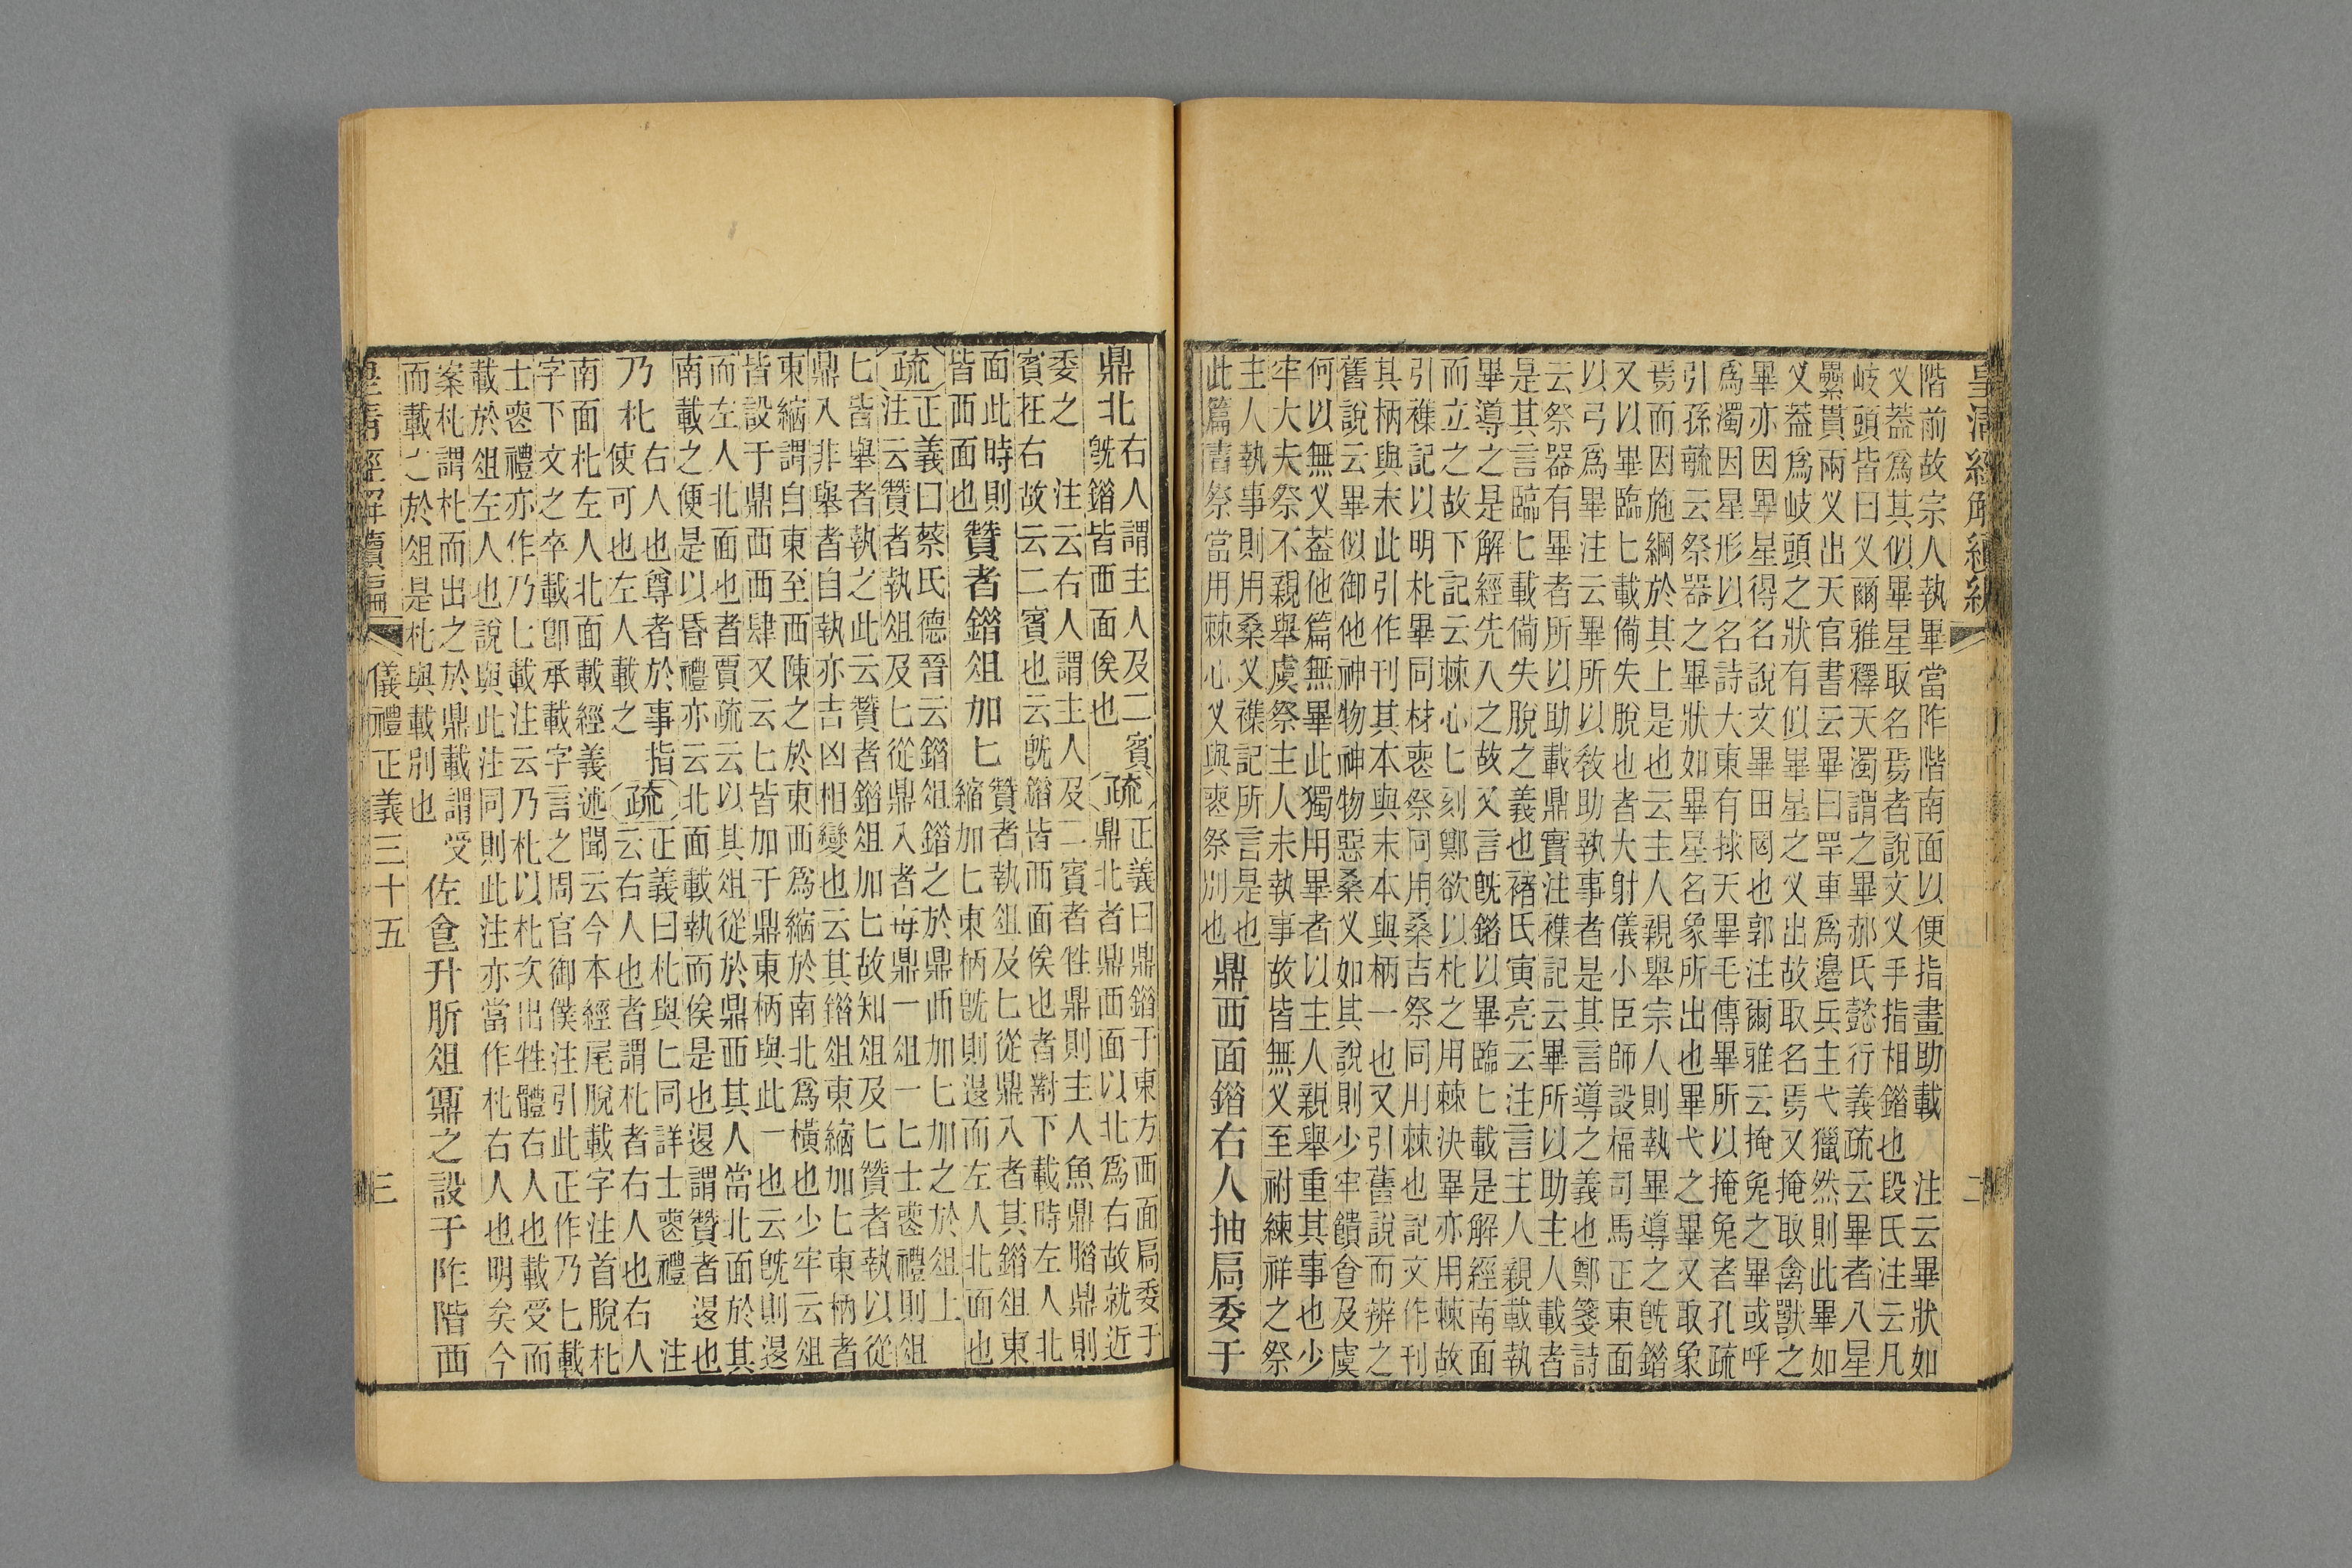 皇清經解續編 二
階前故宗人執畢當阼階南面以便指畫助載　注云畢狀如
叉蓋爲其似畢星取名焉者說文叉手指相錯也段氏注云凡
岐頭皆曰叉爾雅釋天濁謂之畢郝氏懿行義疏云畢者八星
纍貫兩叉出天官書云畢曰罕車爲邉兵主弋獵然則此畢如
叉蓋爲岐頭之狀有似畢星之叉出故取名焉又掩取禽獸之
畢亦因畢星得名說文畢田罔也郭注爾雅云掩兔之畢或呼
爲濁因星形以名詩大東有捄天畢毛傳畢所以掩兔者孔疏
引孫毓云祭器之畢狀如畢星名象所出也畢弋之畢又取象
焉而因施綱於其上是也云主人親舉宗人則執畢導之旣錯
又以畢臨匕載備失脫也者大射儀小臣師設楅司馬正東面
以弓爲畢注云畢所以敎助執事者是其言導之義也鄭箋詩
云祭器有畢者所以助載鼎實注襍記云畢所以助主人載者
是其言臨匕載備失脫之義也褚氏寅亮云注言主人親載執
畢導之是解經先入之故又言旣錯以畢臨匕載是解經南面
而立之故下記云棘心匕刻鄭欲以朼之用棘決畢亦用棘故
引襍記以明朼畢同材喪祭同用桑吉祭同用棘也記文作刊
其柄與末此引作刊其本與末本與柄一也又引舊說而辨之
舊說云畢似御他神物神物惡桑叉如其說則少牢饋食及虞
何以無叉蓋他篇無畢此獨用畢者以主人親舉重其事也少
牢大夫祭不親舉虞祭主人未執事故皆無叉至祔練祥之祭
主人執事則用桑叉襍記所言是也
此篇吉祭當用棘心叉與喪祭別也
鼎西面錯右人抽扃委于
鼎北
右人謂主人及二賓
旣錯皆西面俟也
疏
正義曰鼎錯于東方西面扃委于
鼎北者鼎西面以北爲右故就近
委之　注云右人謂主人及二賓者牲鼎則主人魚鼎腊鼎則
賓在右故云二賓也云旣錯皆西面俟也者對下載時左人北
面此時則
皆西面也
贊者錯俎加匕
贊者執俎及匕從鼎入者其錯俎東
縮加匕東柄旣則退而左人北面也
疏
正義曰蔡氏德晉云錯俎錯之於鼎西加匕加之於俎上
注云贊者執俎及匕從鼎入者每鼎一俎一匕士喪禮則俎
匕皆舉者執之此云贊者錯俎加匕故知俎及匕贊者執以從
鼎入非舉者自執亦吉凶相變也云其錯俎東縮加匕東柄者
東縮謂自東至西陳之於東西爲縮於南北爲橫也少牢云俎
皆設于鼎西西肆又云匕皆加于鼎東柄與此一也云旣則退
而左人北面也者賈疏云以其俎從於鼎西其人當北面於其
南載之便是以昏禮亦云北面載執而俟是也退謂贊者退也
乃朼
右人也尊者於事指
使可也左人載之
疏
正義曰朼與匕同詳士喪禮　注
云右人也者謂朼者右人也右人
南面朼左人北面載經義述聞云今本經尾脫載字注首脫朼
字下文之卒載卽承載字言之周官御僕注引此正作乃匕載
士喪禮亦作乃匕載注云乃朼以朼次出牲體右人也載受而
載於俎左人也說與此注同則此注亦當作朼右人也明矣今
案朼謂朼而出之於鼎載謂受
而載之於俎是朼與載別也
佐食升肵俎鼏之設于阼階西
皇清經解續編 儀禮正義三十五 三